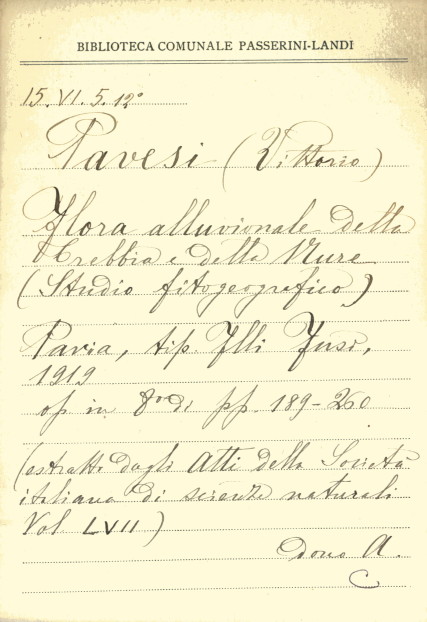 BIBLIOTECA COMUNALE PASSERINI-LANDI
15. VI. 5. 12°
Pavesi (Vittorio)
Flora alluvionale della
Trebbia e della Nure
(Studio fitogeografico)
Pavia, tip. Flli Fusi,
1919
op in 8° di pp. 189-260
(estratto dagli Atti della Società
italiana di scienze naturali
Vol LVII)
Dono A.